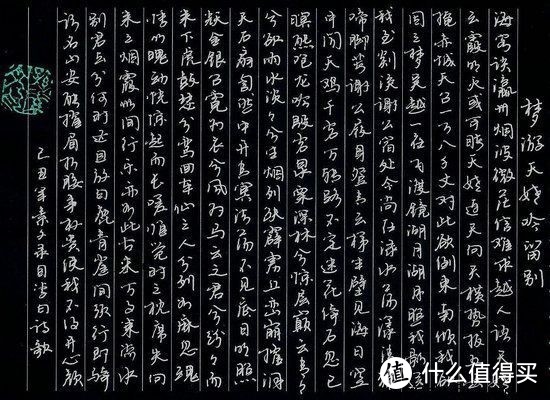 梦游天姥吟留别
海客谈瀛洲烟波微茫信难求越人语天姥
云霞明灭或可睹天姥连天向天横势拔五岳
掩赤城天台一万八千丈对此欲倒东南倾我欲
因之梦吴越一夜飞渡镜湖月湖月照我影送
我至剡溪谢公宿处今尚在渌水荡漾清猿
啼脚著谢公屐身登青云梯半壁见海日空
中闻天鸡千岩万转路不定迷花倚石忽已
暝熊咆龙吟殷岩泉栗深林兮惊层巅云青青
兮欲雨水淡淡兮生烟列缺霹雳丘峦崩摧洞
天石扉訇然中开青冥浩荡不见底日月照
耀金银台霓为衣兮风为马云之君兮纷纷而
来下虎鼓瑟兮鸾回车仙之人兮列如麻忽魂
悸以魄动恍惊起而长嗟惟觉时之枕席失向
来之烟霞世间行乐亦如此古来万事东流水
别君去兮何时还且放白鹿青崖间须行即骑
访名山安能摧眉折腰事权贵使我不得开心颜
己丑年素文录自李白诗歌
值 什么值得买